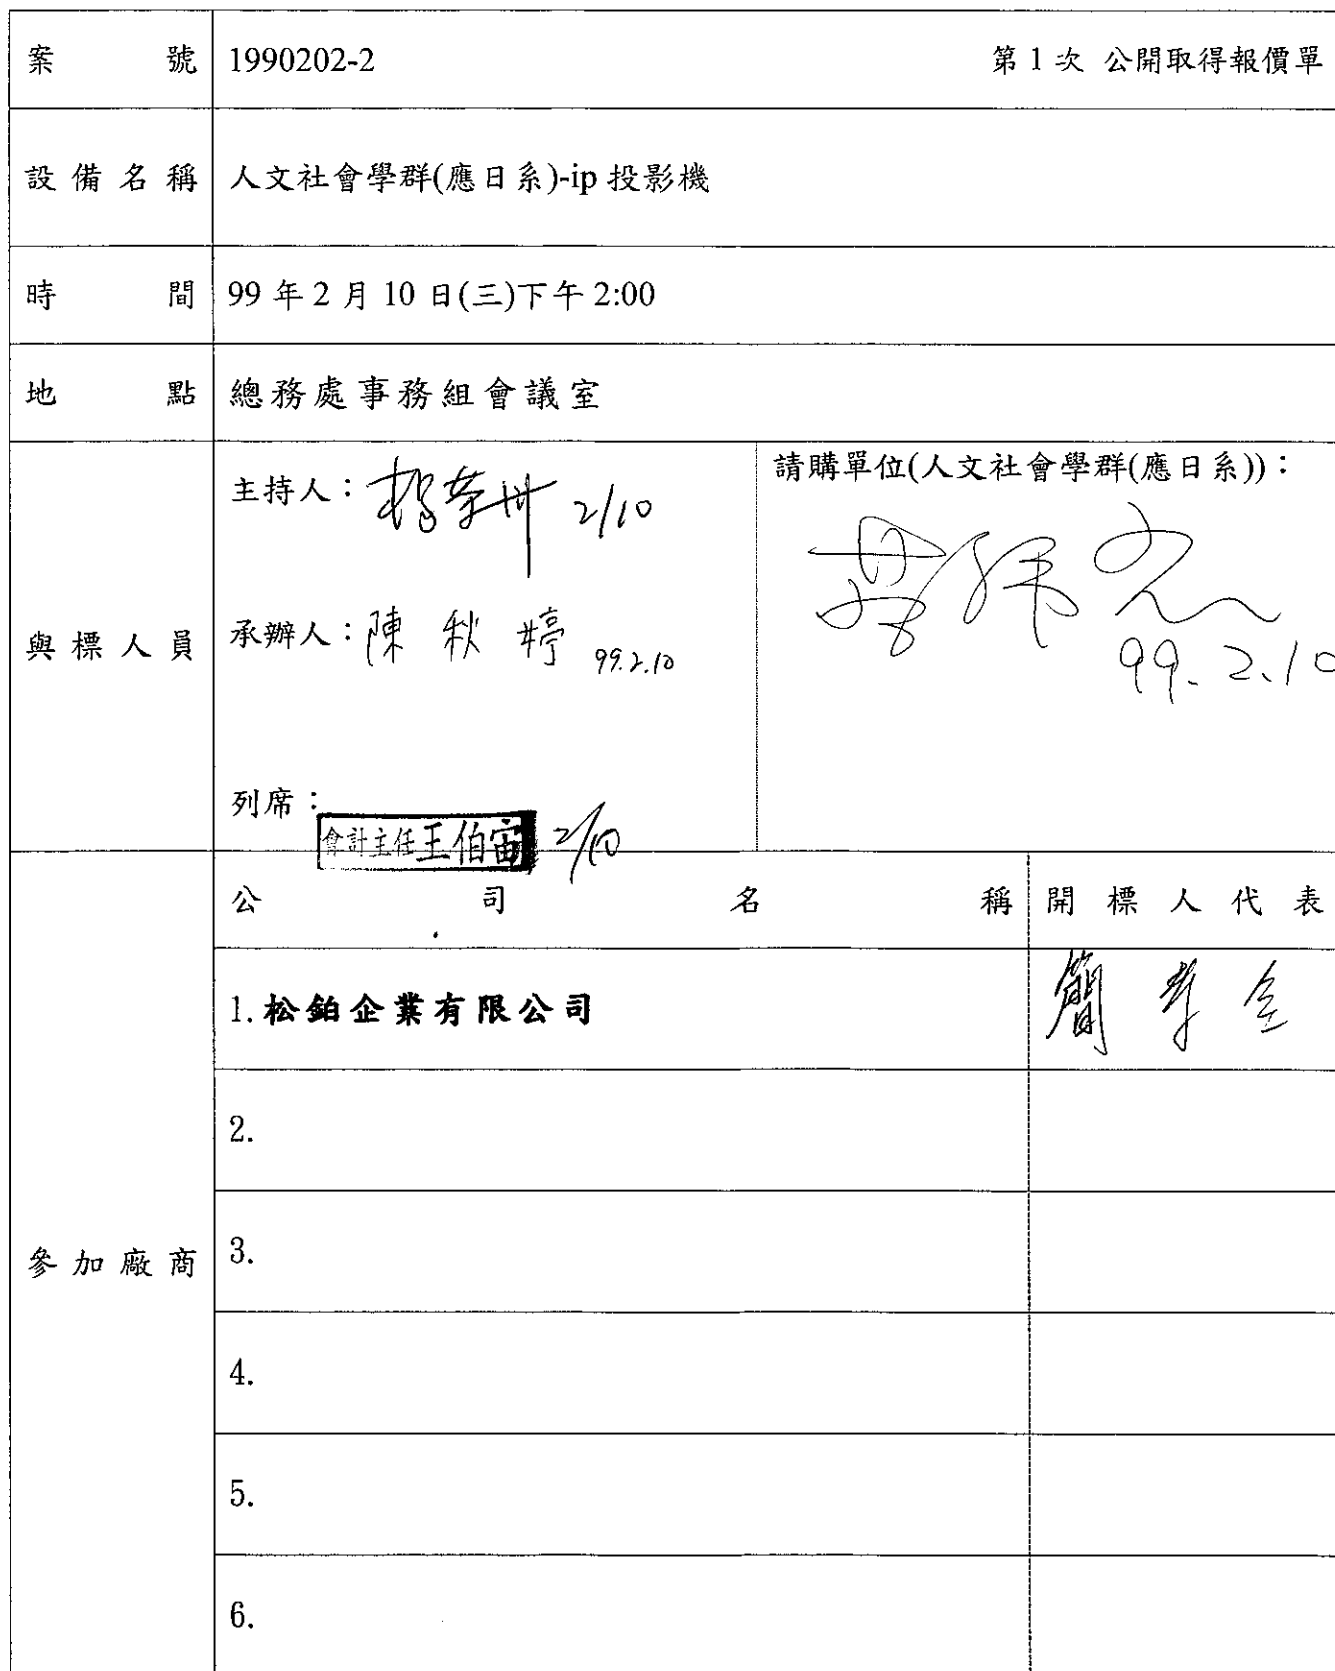 案號 1990202-2 第1次 公開取得報價單
設備名稱 人文社會學群(應日系)-ip投影機
時間 99年2月10日(三)下午2:00
地點 總務處事務組會議室
與標人員
主持人： 2/10
承辦人：陳秋婷 99.2.10
列席：
會計主任王伯宙 2/10
請購單位(人文社會學群(應日系))：
99.2.10
參加廠商
公司名稱 開標人代表
1.松鉑企業有限公司 簡
2.
3.
4.
5.
6.